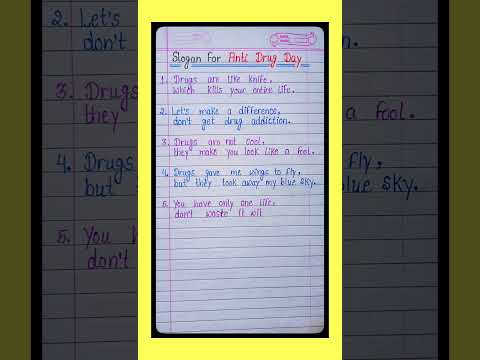 Slogan For Anti Drug Day
1. Drugs are like knife,
which kills your entire life.
2. Let's make a difference,
don't get drug addiction.
3. Drugs are not cool,
they make you look like a fool.
4. Drugs gave me wings to fly,
but they took away my blue sky.
5. You have only one life,
don't waste it wit
2. Let's
don't
3. Drugs
they
a fool.
4. Drugs
fly,
but
sky.
5. You
don't